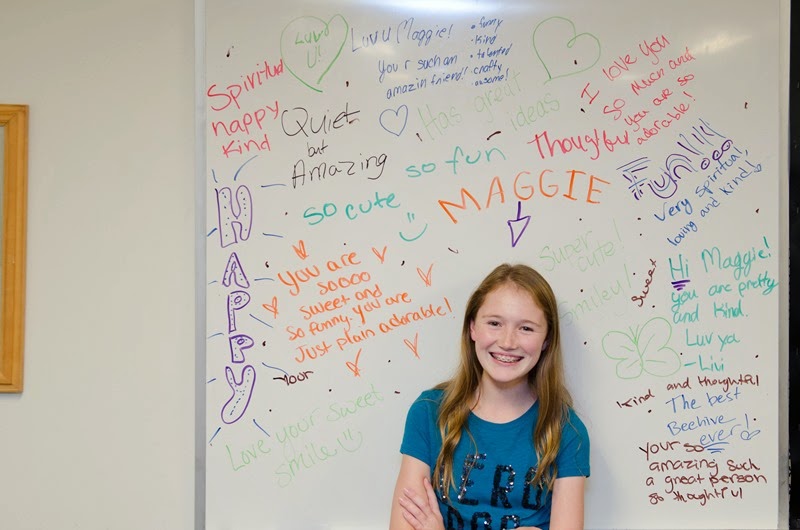 Luv u
U!!
Luv U Maggie!
your such an
amazin friend!!
• funny
• kind
• talented
• crafty
• awsome!
I love you
so much and
you are so
adorable!
Spiritual
happy
kind
Quiet
but
Amazing
Has great
ideas
Thoughtful
Fun!!!!
so fun
so cute
MAGGIE
Very spiritual,
loving and kind!
HAPPY
You are
sooo
sweet and
so funny. you are
Just plain adorable!
Super
cute!
Smiley!
Sweet
Hi Maggie!
you are pretty
and kind.
Luv ya
- Livi
Love your sweet
smile
Kind and thoughtful
The best
Beehive
ever!
your so
amazing such
a great person
so thoughtful
HERO